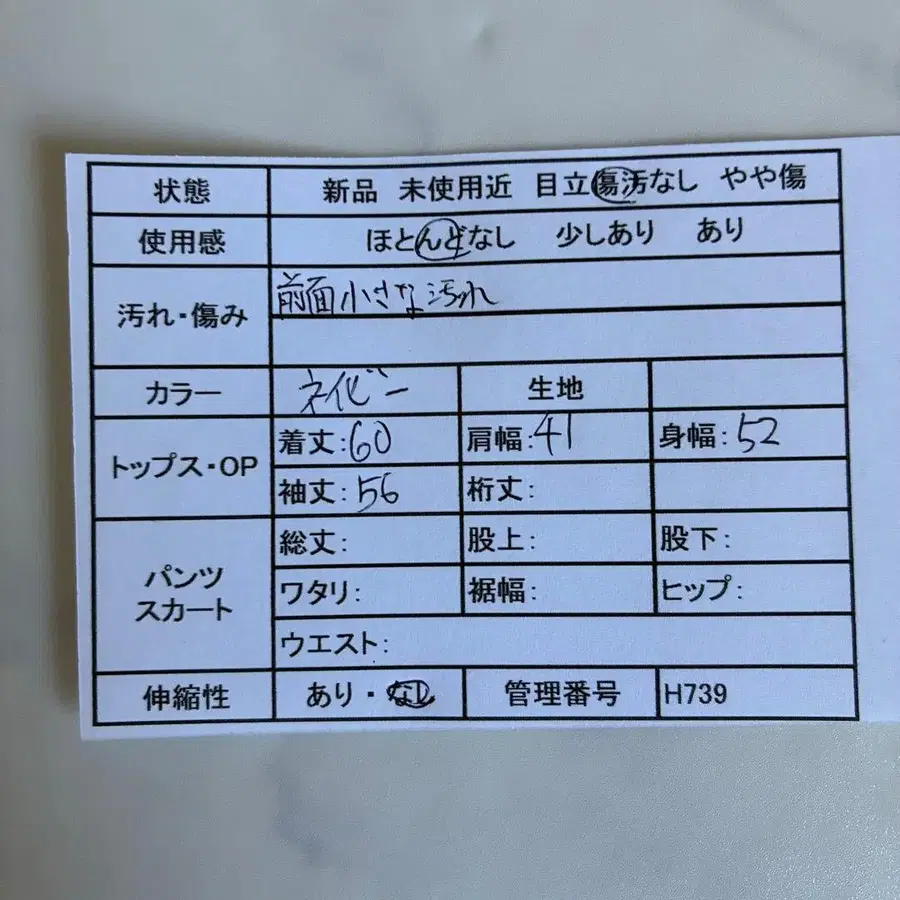 状態 新品 未使用近 目立傷汚なし やや傷
使用感 ほとんどなし 少しあり あり
汚れ・傷み 前面小さな汚れ
カラー ネイビー 生地
トップス・OP 着丈:60 肩幅:41 身幅:52
袖丈:56 裄丈:
パンツ スカート 総丈: 股上: 股下:
ワタリ: 裾幅: ヒップ:
ウエスト:
伸縮性 あり・なし 管理番号 H739